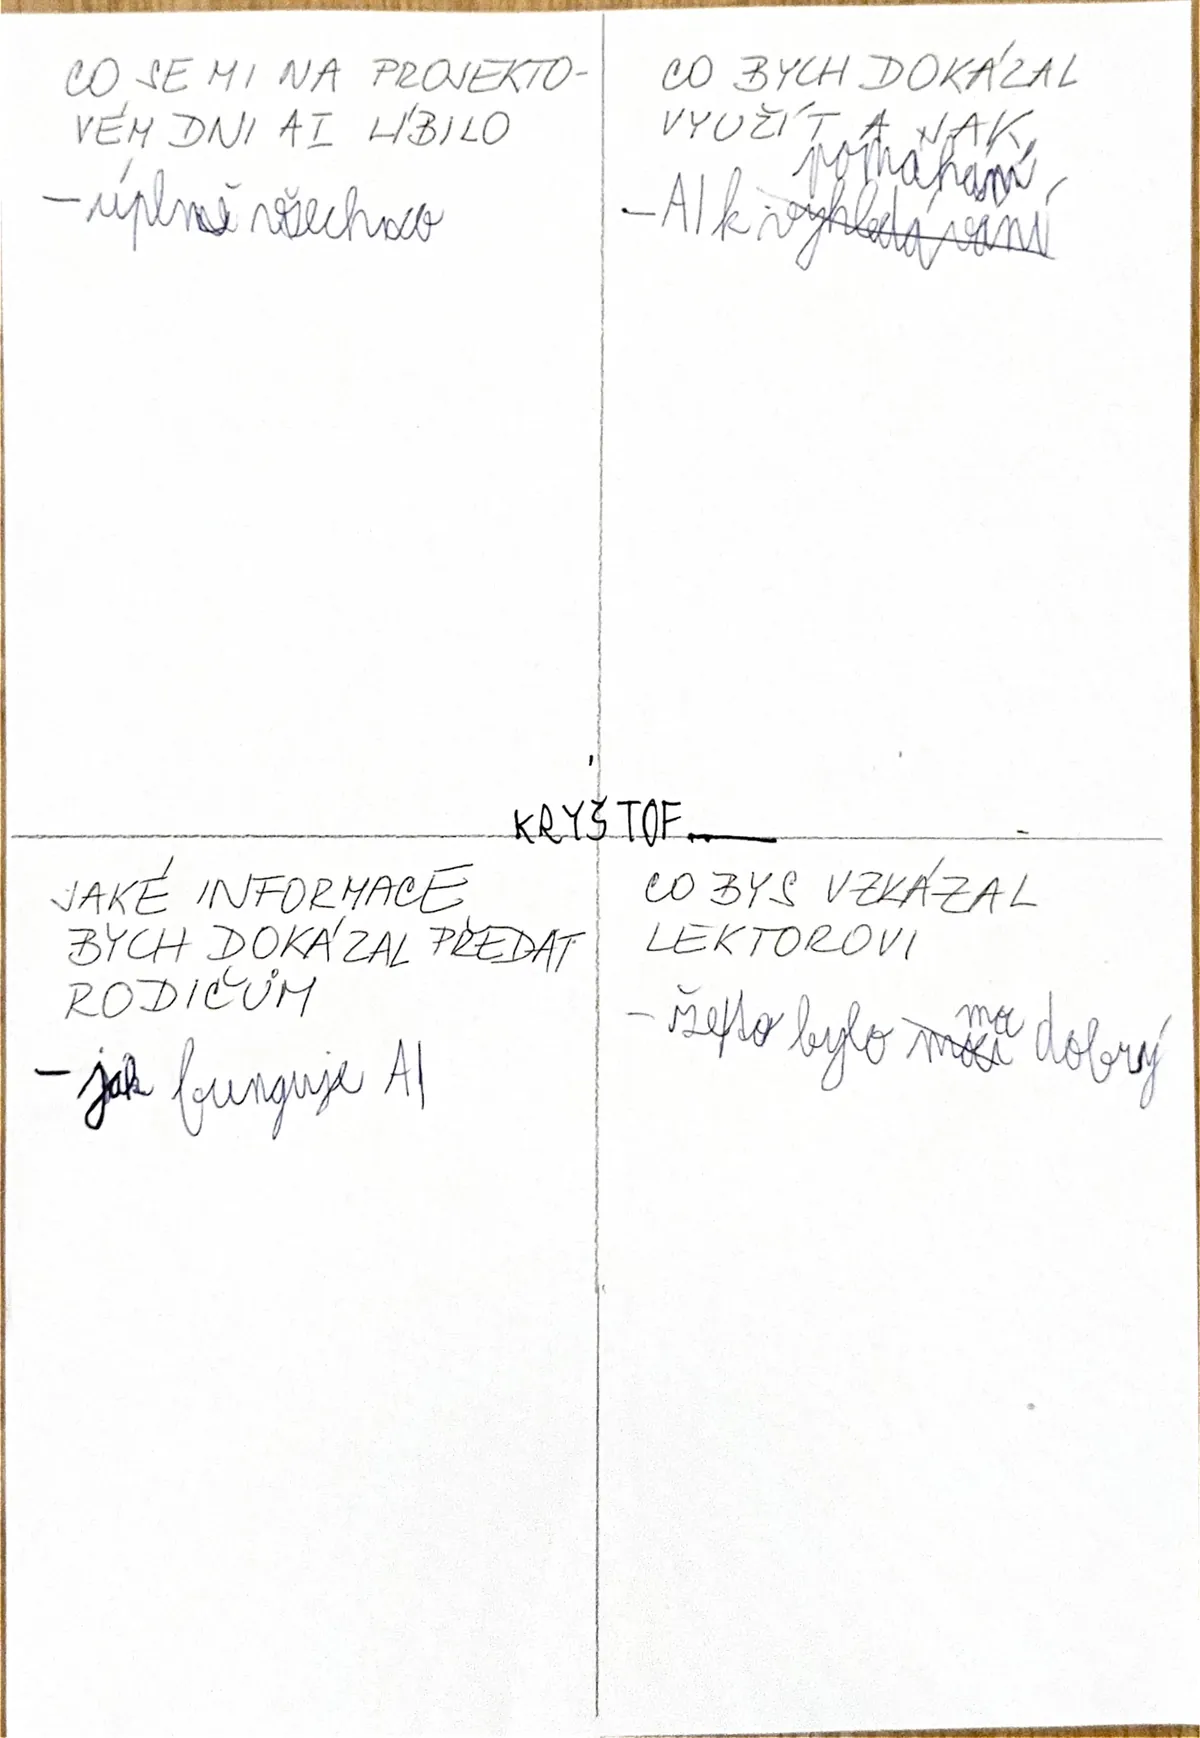 CO SE MI NA PROJEKTO-
VÉM DNI AI LÍBILO
- úplně všechno
CO BYCH DOKÁZAL
VYUŽÍT A JAK
pomáhání
- AI k vyhledávání
KRYŠTOF
JAKÉ INFORMACE
BYCH DOKÁZAL PŘEDAT
RODIČŮM
- jak funguje AI
CO BYS VZKÁZAL
LEKTOROVI
- že to bylo dobrý